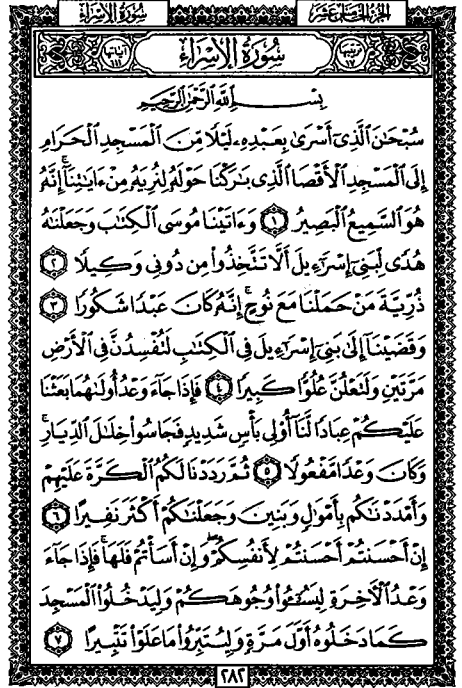 سُورَةُ الإِسْرَاءِ
الجُزْءُ الخَامِسَ عَشَرَ
سُورَةُ الإِسْرَاءِ
بِسْمِ اللَّهِ الرَّحْمَٰنِ الرَّحِيمِ
سُبْحَٰنَ ٱلَّذِىٓ أَسْرَىٰ بِعَبْدِهِۦ لَيْلًا مِّنَ ٱلْمَسْجِدِ ٱلْحَرَامِ
إِلَى ٱلْمَسْجِدِ ٱلْأَقْصَا ٱلَّذِى بَٰرَكْنَا حَوْلَهُۥ لِنُرِيَهُۥ مِنْ ءَايَٰتِنَآ ۚ إِنَّهُۥ
هُوَ ٱلسَّمِيعُ ٱلْبَصِيرُ ١ وَءَاتَيْنَا مُوسَى ٱلْكِتَٰبَ وَجَعَلْنَٰهُ
هُدًى لِّبَنِىٓ إِسْرَٰٓءِيلَ أَلَّا تَتَّخِذُوا۟ مِن دُونِى وَكِيلًا ٢
ذُرِّيَّةَ مَنْ حَمَلْنَا مَعَ نُوحٍ ۚ إِنَّهُۥ كَانَ عَبْدًا شَكُورًا ٣
وَقَضَيْنَآ إِلَىٰ بَنِىٓ إِسْرَٰٓءِيلَ فِى ٱلْكِتَٰبِ لَتُفْسِدُنَّ فِى ٱلْأَرْضِ
مَرَّتَيْنِ وَلَتَعْلُنَّ عُلُوًّا كَبِيرًا ٤ فَإِذَا جَآءَ وَعْدُ أُولَىٰهُمَا بَعَثْنَا
عَلَيْكُمْ عِبَادًا لَّنَآ أُو۟لِى بَأْسٍ شَدِيدٍ فَجَاسُوا۟ خِلَٰلَ ٱلدِّيَارِ ۚ
وَكَانَ وَعْدًا مَّفْعُولًا ٥ ثُمَّ رَدَدْنَا لَكُمُ ٱلْكَرَّةَ عَلَيْهِمْ
وَأَمْدَدْنَٰكُم بِأَمْوَٰلٍ وَبَنِينَ وَجَعَلْنَٰكُمْ أَكْثَرَ نَفِيرًا ٦
إِنْ أَحْسَنتُمْ أَحْسَنتُمْ لِأَنفُسِكُمْ ۖ وَإِنْ أَسَأْتُمْ فَلَهَا ۚ فَإِذَا جَآءَ
وَعْدُ ٱلْأَخِرَةِ لِيَسُۥٓـُٔوا۟ وُجُوهَكُمْ وَلِيَدْخُلُوا۟ ٱلْمَسْجِدَ
كَمَا دَخَلُوهُ أَوَّلَ مَرَّةٍ وَلِيُتَبِّرُوا۟ مَا عَلَوْا۟ تَتْبِيرًا ٧
٢٨٢